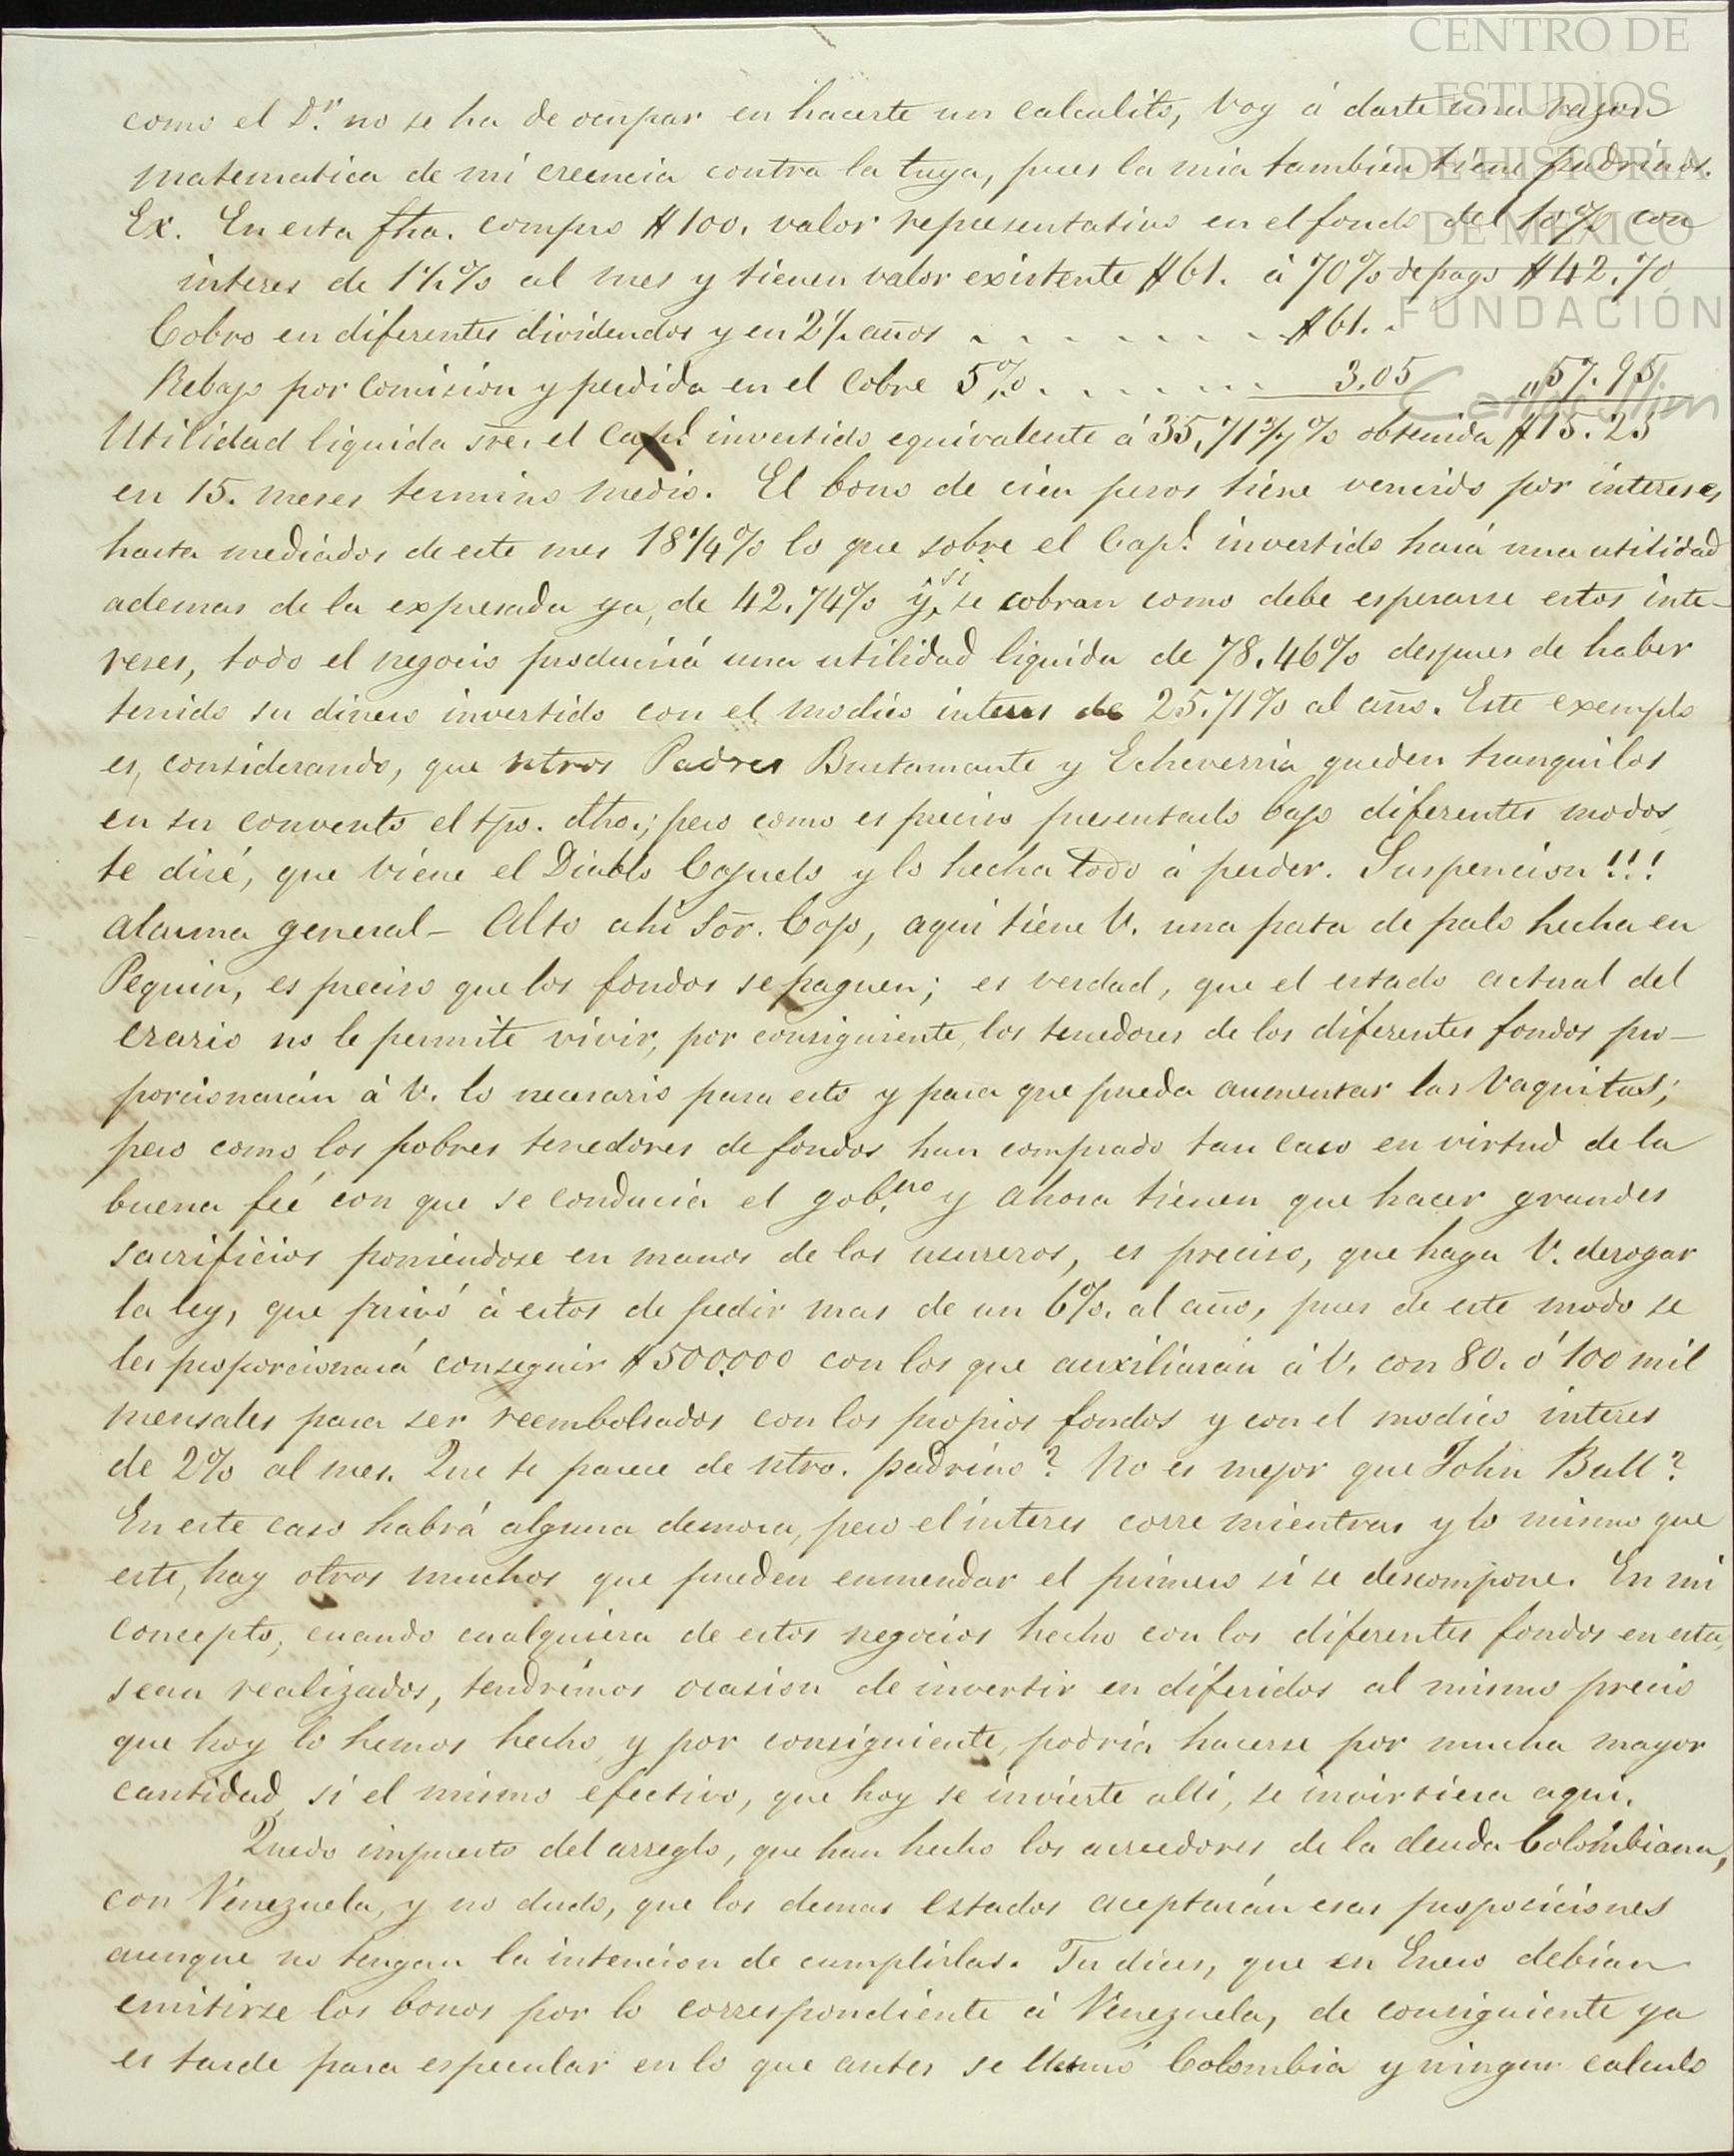 CENTRO DE
ESTUDIOS
DE HISTORIA
DE MÉXICO
FUNDACIÓN
Carlos Slim
como el D.r no se ha de ocupar en hacerte un calculito, voy á darte una razon
matematica de mi creencia contra la tuya, pues la mia tambien tiene padrinos.
Ex. En esta fha. compro $100. valor representativo en el fondo del 10% con
interes de 1½% al mes y tienen valor existente $61. á 70% de pago $42.70
Cobro en diferentes dividendos y en 2½ años . . . . . . . $61. .
Rebajo por comision y perdida en el cobro 5% . . . . . . . 3.05 „57.95
Utilidad liquida sre. el Cap.l invertido equivalente á 35,71 3/7% obtenida $15.25
en 15. meses termino medio. El bono de cien pesos tiene vencido por intereses
hasta mediados de este mes 18¼% lo que sobre el Cap.l invertido hará una utilidad
ademas de la expresada ya, de 42.74% y si se cobran como debe esperarse estos inte-
reses, todo el negocio produciriá una utilidad liquida de 78.46% despues de haber
tenido su dinero invertido con el modico interes de 25.71% al año. Este exemplo
es, considerando, que ntros Padres Bustamante y Echeverria queden tranquilos
en su convento el tpo. dho.; pero como es preciso presentarlo bajo diferentes modos
te diré, que viene el Diablo Cojuelo y lo hecha todo á perder. Suspencion!!!
alarma general - Alto ahi Sor. Cojo, aqui tiene V. una pata de palo hecha en
Pequin, es preciso que los fondos se paguen; es verdad, que el estado actual del
erario no le permite vivir, por consiguiente, los tenedores de los diferentes fondos pro-
porcionarán á V. lo necesario para esto y para que pueda aumentar las Vaquitas;
pero como los pobres tenedores de fondos han comprado tan caro en virtud de la
buena fée con que se conducia el gob.no y ahora tienen que hacer grandes
sacrificios poniendose en manos de los usureros, es preciso, que haga V. derogar
la ley, que privó á estos de pedir mas de un 6%. al año, pues de este modo se
les proporcionará conseguir $500.000 con los que auxiliarán á V. con 80. ó 100 mil
mensales para ser reembolsados con los propios fondos y con el modico interes
de 2% al mes. Que te parece de ntro. padrino? No es mejor que John Bull?
En este caso habrá alguna demora, pero el interes corre mientras y lo mismo que
este, hay otros muchos que pueden enmendar el primero si se descompone. En mi
concepto, cuando cualquiera de estos negocios hecho con los diferentes fondos en esta,
sean realizados, tendrémos ocasion de invertir en diferidos al mismo precio
que hoy lo hemos hecho y por consiguiente, podria hacerse por mucha mayor
cantidad, si el mismo efectivo, que hoy se invierte alli, se invirtiera aqui.
Quedo impuesto del arreglo, que han hecho los acreedores de la deuda Colombiana,
con Venezuela, y no dudo, que los demas estados aceptarán esas proposiciones
aunque no tengan la intencion de cumplirlas. Tu dices, que en Enero debian
emitirse los bonos por lo correspondiente á Venezuela, de consiguiente ya
es tarde para especular en lo que antes se llamó Colombia y ningun calculo